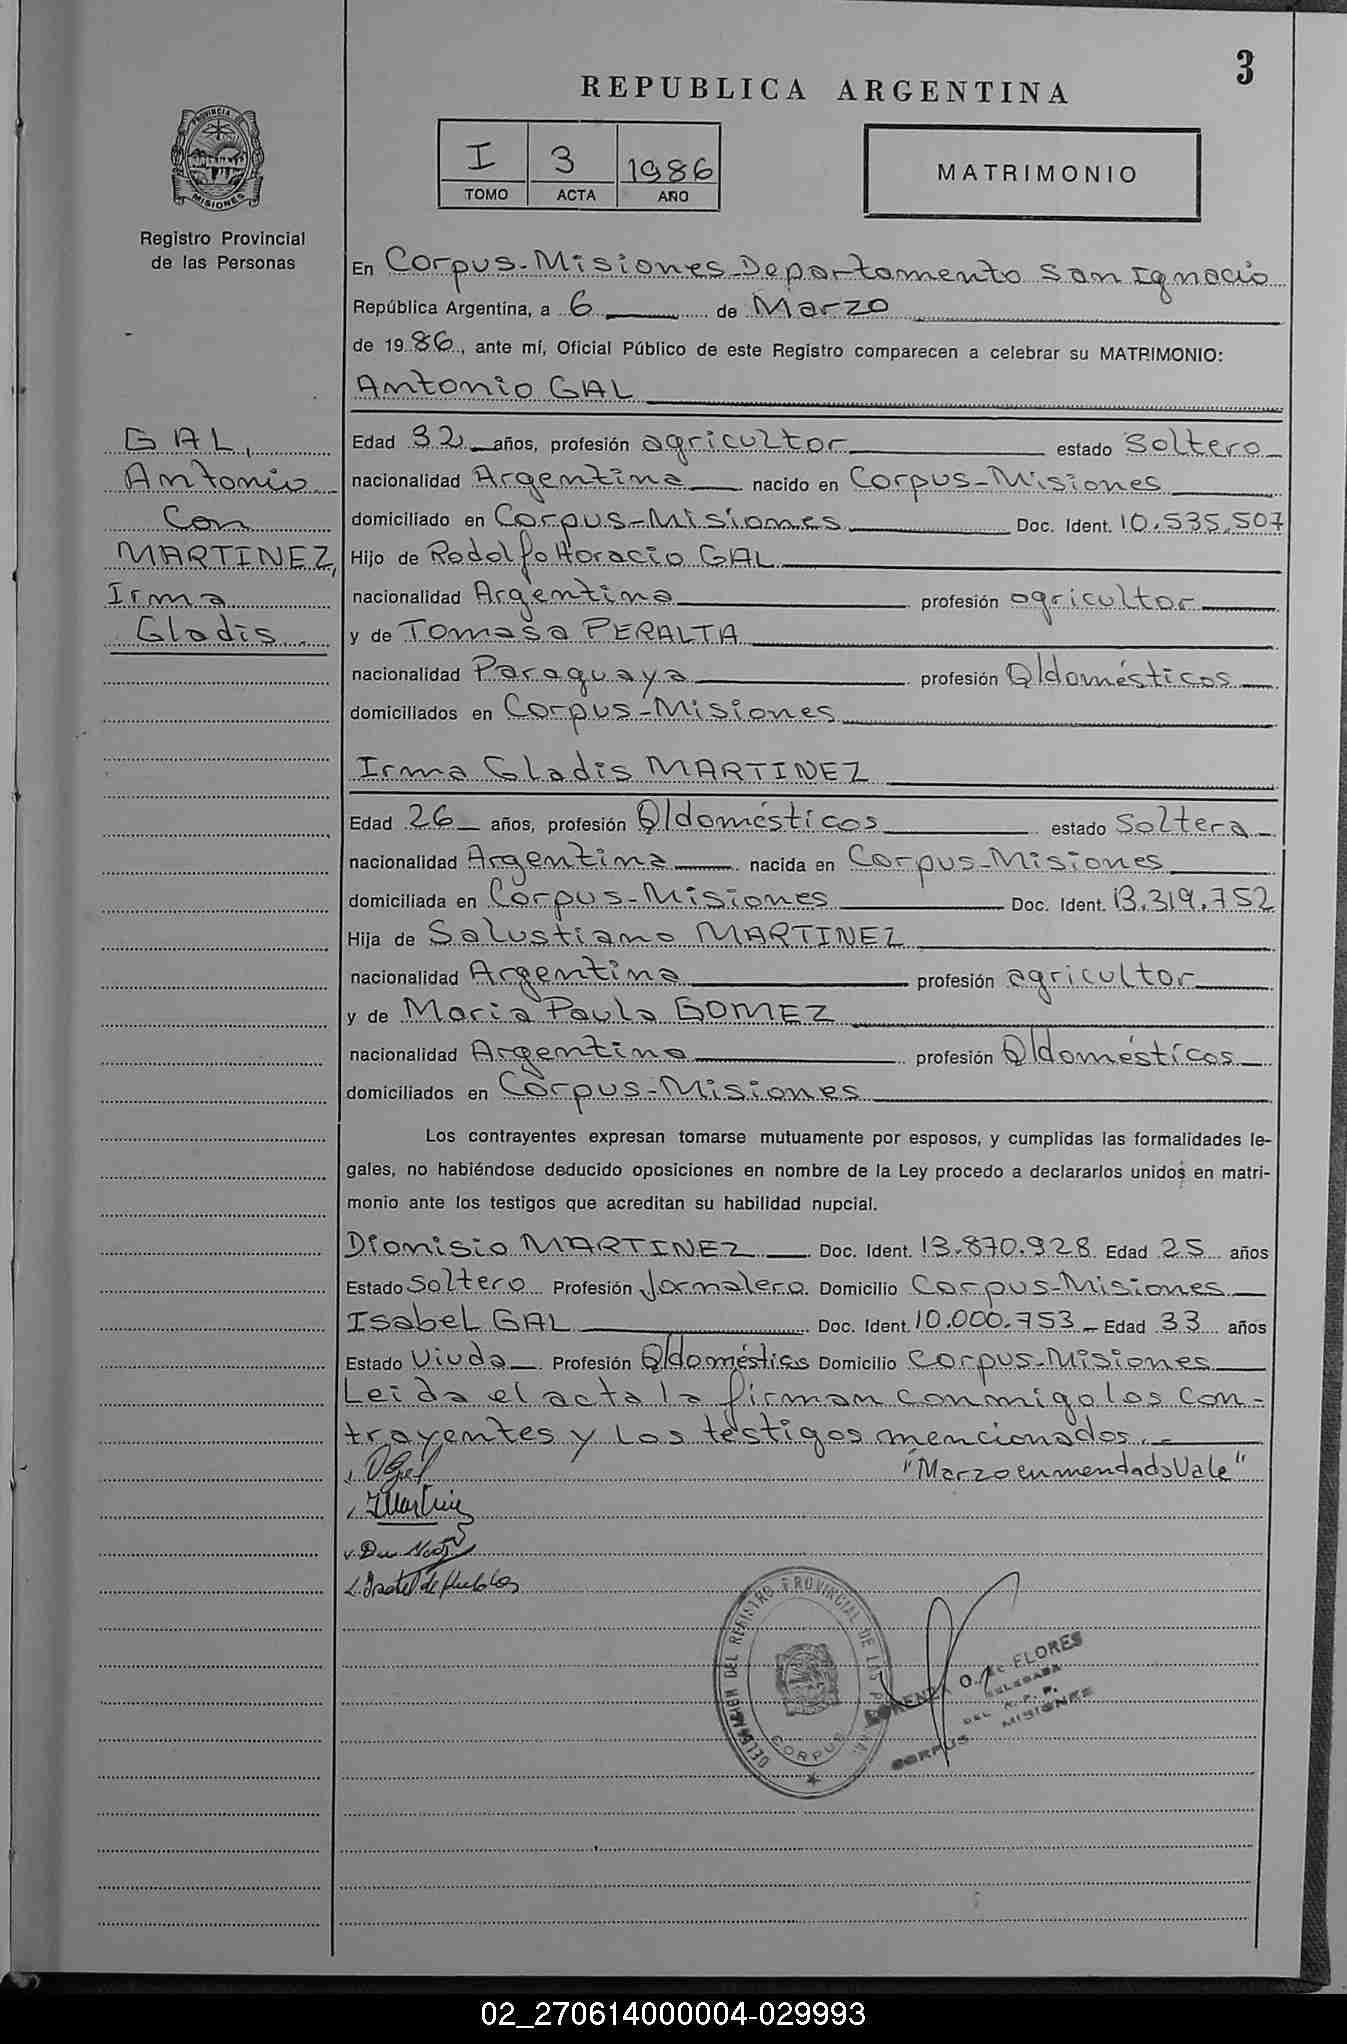 3
REPUBLICA ARGENTINA
PROVINCIA DE
MISIONES
Registro Provincial
de las Personas
I 3 1986
TOMO ACTA AÑO
MATRIMONIO
En Corpus-Misiones-Departamento San Ignacio
República Argentina, a 6 de Marzo
de 1986, ante mí, Oficial Público de este Registro comparecen a celebrar su MATRIMONIO:
Antonio GAL
GAL,
Antonio
Con
MARTINEZ,
Irma
Gladis
Edad 32 años, profesión agricultor estado Soltero
nacionalidad Argentina nacido en Corpus-Misiones
domiciliado en Corpus-Misiones Doc. Ident. 10.535.507
Hijo de Rodolfo Horacio GAL
nacionalidad Argentina profesión agricultor
y de Tomasa PERALTA
nacionalidad Paraguaya profesión Q/domésticos
domiciliados en Corpus-Misiones
Irma Gladis MARTINEZ
Edad 26 años, profesión Q/domésticos estado Soltera
nacionalidad Argentina nacida en Corpus-Misiones
domiciliada en Corpus-Misiones Doc. Ident. 13.319.752
Hija de Salustiano MARTINEZ
nacionalidad Argentina profesión agricultor
y de Maria Paula GOMEZ
nacionalidad Argentina profesión Q/domésticos
domiciliados en Corpus-Misiones
Los contrayentes expresan tomarse mutuamente por esposos, y cumplidas las formalidades le-
gales, no habiéndose deducido oposiciones en nombre de la Ley procedo a declararlos unidos en matri-
monio ante los testigos que acreditan su habilidad nupcial.
Dionisio MARTINEZ Doc. Ident. 13.870.928 Edad 25 años
Estado Soltero Profesión Jornalero Domicilio Corpus-Misiones
Isabel GAL Doc. Ident. 10.000.753 Edad 33 años
Estado Viuda Profesión Q/domésticos Domicilio Corpus-Misiones
Leida el acta la firman conmigo los con-
trayentes y los testigos mencionados.-
"Marzo enmendado Vale"
REGISTRO PROVINCIAL DE LAS
CORPUS
O. de FLORES
DELEGADA
DEL R. P. P.
CORPUS MISIONES
02_270614000004-029993